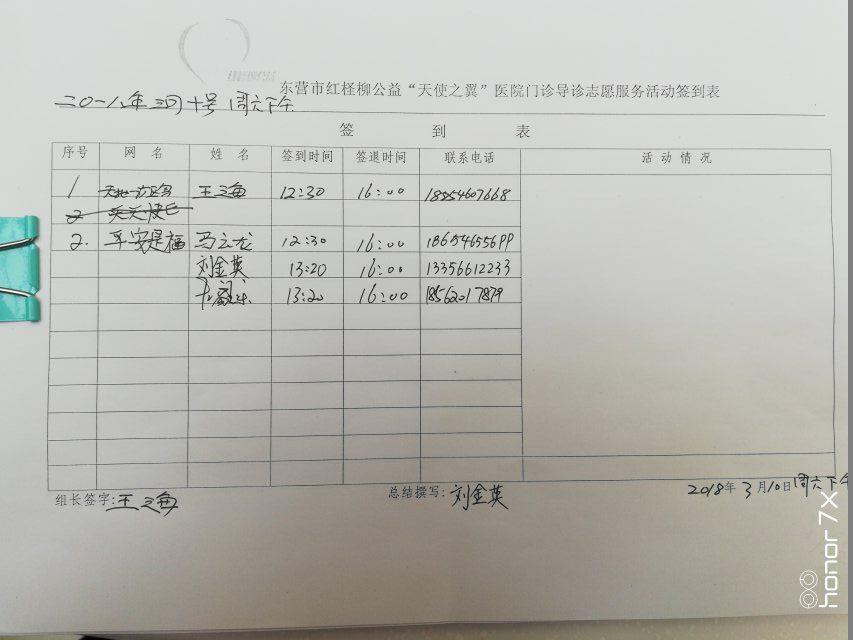 东营市红柽柳公益“天使之翼”医院门诊导诊志愿服务活动签到表
二〇一八年三月十号 周六下午
签 到 表
序号 网 名 姓 名 签到时间 签退时间 联系电话 活 动 情 况
1 王之海 12:30 16:00 18554607668
2
2. 平安是福 马云龙 12:30 16:00 18654655699
刘金英 13:20 16:00 13356612233
13:20 16:00 18562017879
组长签字:王之海 总结撰写:刘金英 2018年3月10日周六下午
honor 7X